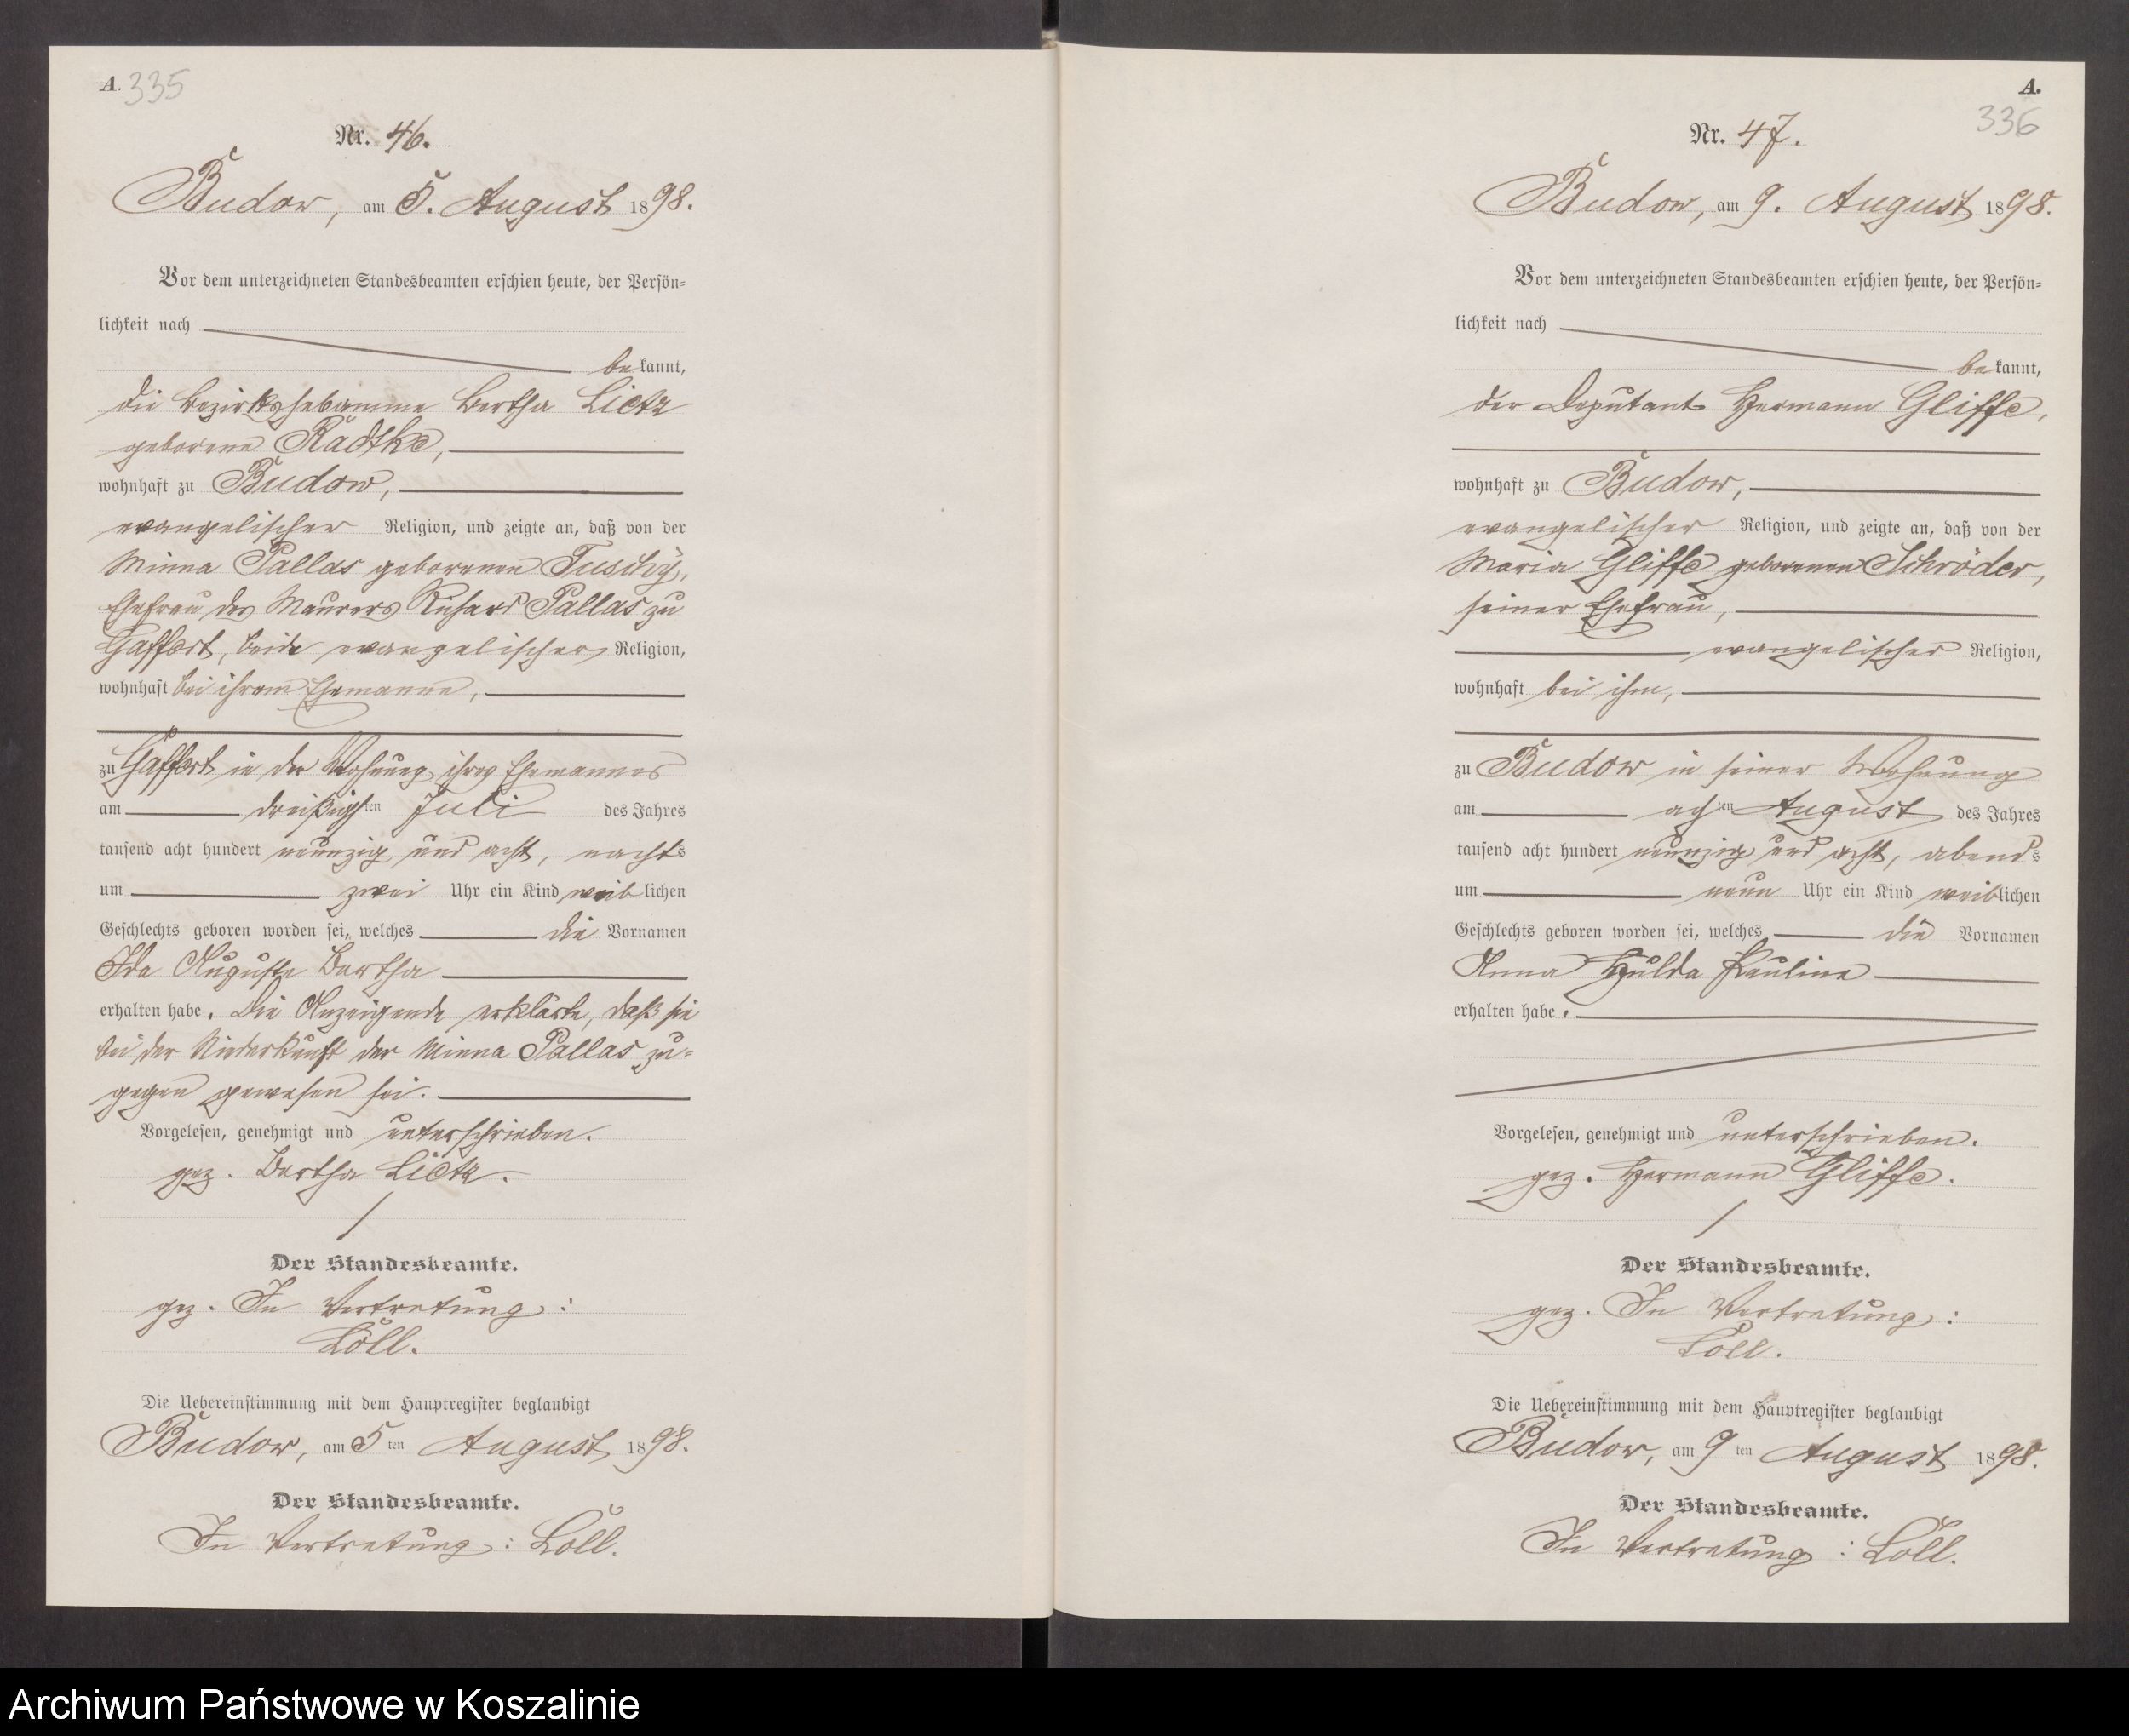 A. 335
Nr. 46.
Budow, am 5. August 1898.
Vor dem unterzeichneten Standesbeamten erschien heute, der Persön-
lichkeit nach
bekannt,
die Bezirkshebamme Bertha Lietz
geborene Radtke,
wohnhaft zu Budow,
evangelischer Religion, und zeigte an, daß von der
Minna Pallas geborenen Tuschy,
Ehefrau des Maurers Richard Pallas zu
Gaffert, beide evangelischer Religion,
wohnhaft bei ihrem Ehemanne,
zu Gaffert in der Wohnung ihres Ehemannes
am dreißigsten Juli des Jahres
tausend acht hundert neunzig und acht, nachts
um zwei Uhr ein Kind weiblichen
Geschlechts geboren worden sei, welches die Vornamen
Ida Auguste Bertha
erhalten habe. Die Anzeigende erklärte, daß sie
bei der Niederkunft der Minna Pallas zu-
gegen gewesen sei.
Vorgelesen, genehmigt und unterschrieben.
gez. Bertha Lietz.
Der Standesbeamte.
gez. In Vertretung:
Löll.
Die Uebereinstimmung mit dem Hauptregister beglaubigt
Budow, am 5ten August 1898.
Der Standesbeamte.
In Vertretung: Löll.
A.
336
Nr. 47.
Budow, am 9. August 1898.
Vor dem unterzeichneten Standesbeamten erschien heute, der Persön-
lichkeit nach
bekannt,
der Deputant Hermann Gliffe,
wohnhaft zu Budow,
evangelischer Religion, und zeigte an, daß von der
Maria Gliffe geborenen Schröder,
seiner Ehefrau,
evangelischer Religion,
wohnhaft bei ihm,
zu Budow in seiner Wohnung
am achten August des Jahres
tausend acht hundert neunzig und acht, abends
um neun Uhr ein Kind weiblichen
Geschlechts geboren worden sei, welches die Vornamen
Anna Hulda Pauline
erhalten habe.
Vorgelesen, genehmigt und unterschrieben.
gez. Hermann Gliffe.
Der Standesbeamte.
gez. In Vertretung:
Löll.
Die Uebereinstimmung mit dem Hauptregister beglaubigt
Budow, am 9ten August 1898.
Der Standesbeamte.
In Vertretung: Löll.
Archiwum Państwowe w Koszalinie